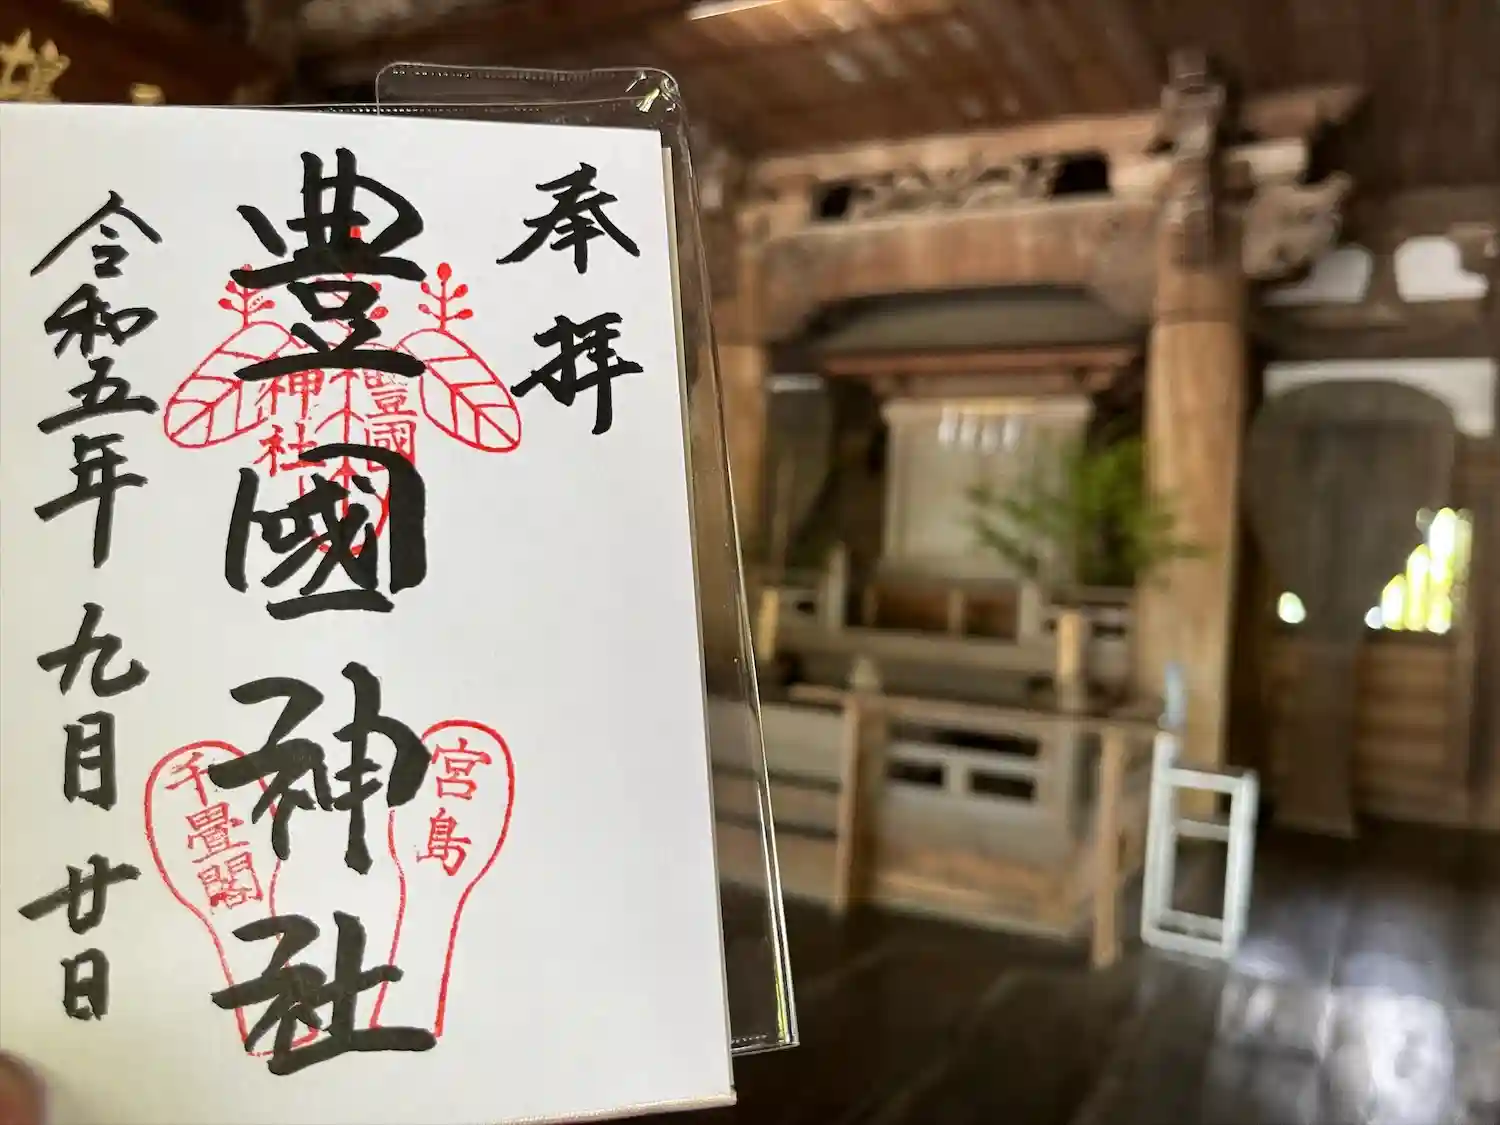 奉拝
豊國神社
令和五年九月廿日
豐國
神社
宮島
千畳閣